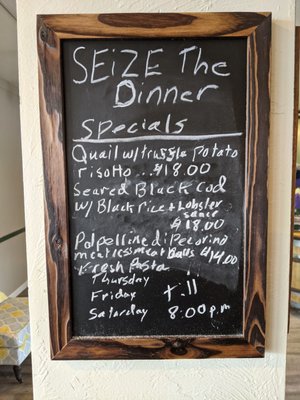 SEiZE The
Dinner
Specials
Quail w/truffle potato
risotto...$18.00
Seared Black Cod
w/ Black rice + Lobster
sauce
$18.00
Polpelline di Pecorino
meatless meat Balls $14.00
Fresh Pasta
Thursday
Friday till
Saturday 8:00 p.m